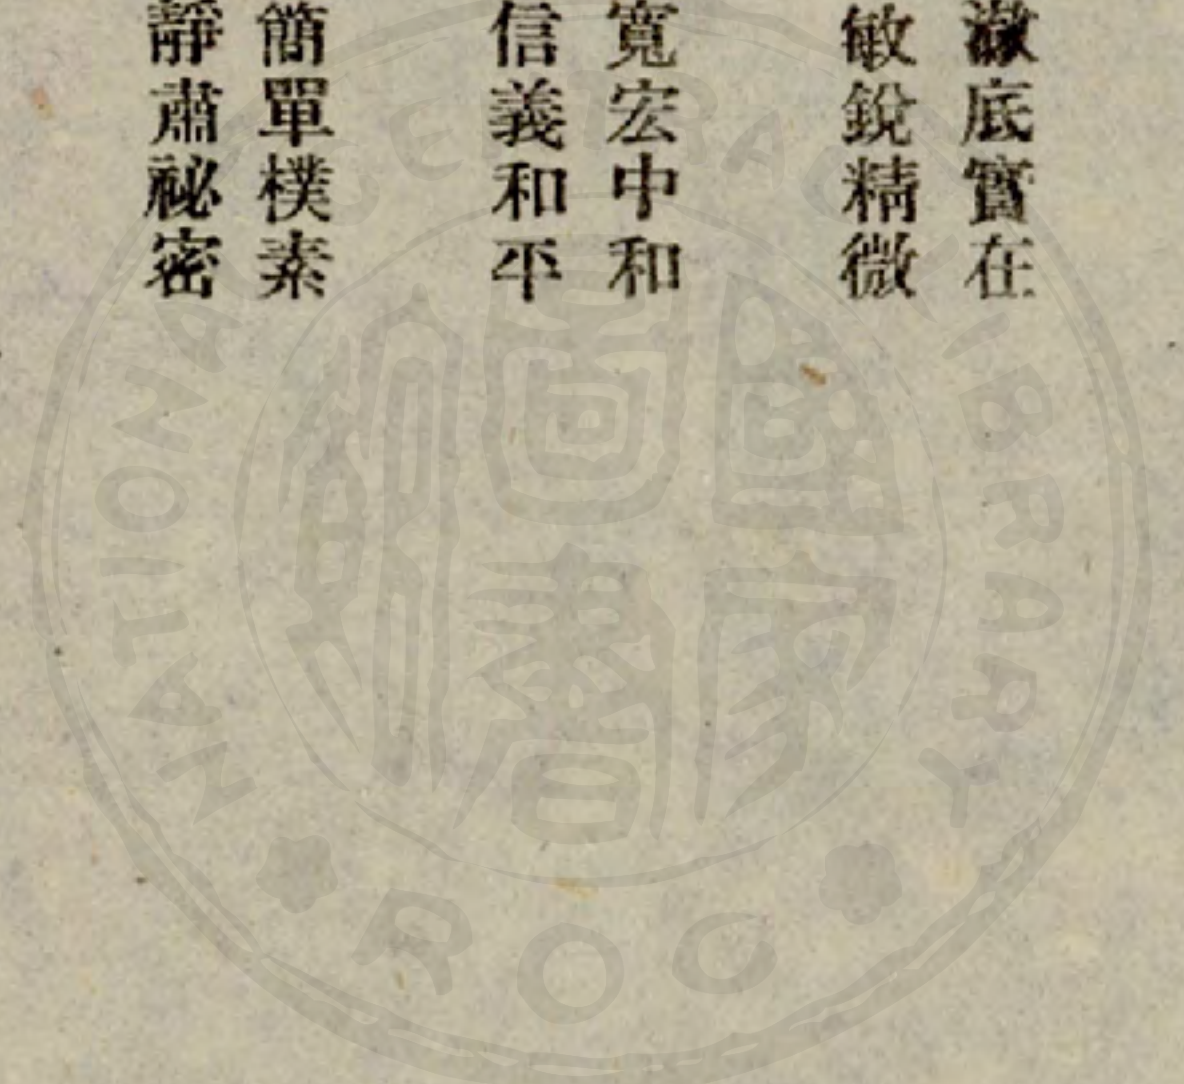 澈底實在
敏銳精微
寬宏中和
信義和平
簡單樸素
靜肅祕密
國家圖書館
NATIONAL CENTRAL LIBRARY
ROC